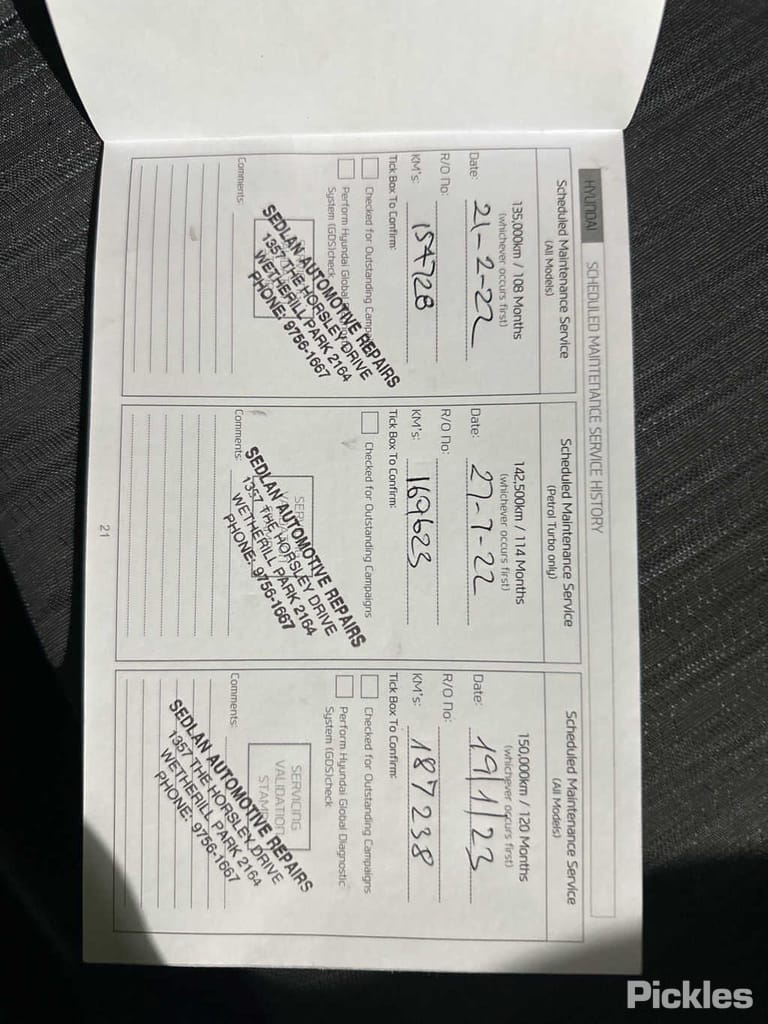 HYUNDAI SCHEDULED MAINTENANCE SERVICE HISTORY
Scheduled Maintenance Service
(All Models)
135,000km / 108 Months
(whichever occurs first)
Date: 21-2-22
R/O No:
KM's: 154728
Tick Box To Confirm:
Checked for Outstanding Camp
Perform Hyundai Global
System (GDS)check
SEDLAN AUTOMOTIVE REPAIRS
1357 THE HORSLEY DRIVE
WETHERILL PARK 2164
PHONE: 9756-1667
Comments:
Scheduled Maintenance Service
(Petrol Turbo only)
142,500km / 114 Months
(whichever occurs first)
Date: 27-7-22
R/O No:
KM's: 169623
Tick Box To Confirm:
Checked for Outstanding Campaigns
SEDLAN AUTOMOTIVE REPAIRS
1357 THE HORSLEY DRIVE
WETHERILL PARK 2164
PHONE: 9756-1667
Comments:
Scheduled Maintenance Service
(All Models)
150,000km / 120 Months
(whichever occurs first)
Date: 19/1/23
R/O No:
KM's: 187238
Tick Box To Confirm:
Checked for Outstanding Campaigns
Perform Hyundai Global Diagnostic
System (GDS)check
SERVICING
VALIDATION
STAMP
SEDLAN AUTOMOTIVE REPAIRS
1357 THE HORSLEY DRIVE
WETHERILL PARK 2164
PHONE: 9756-1667
Comments:
21
Pickles